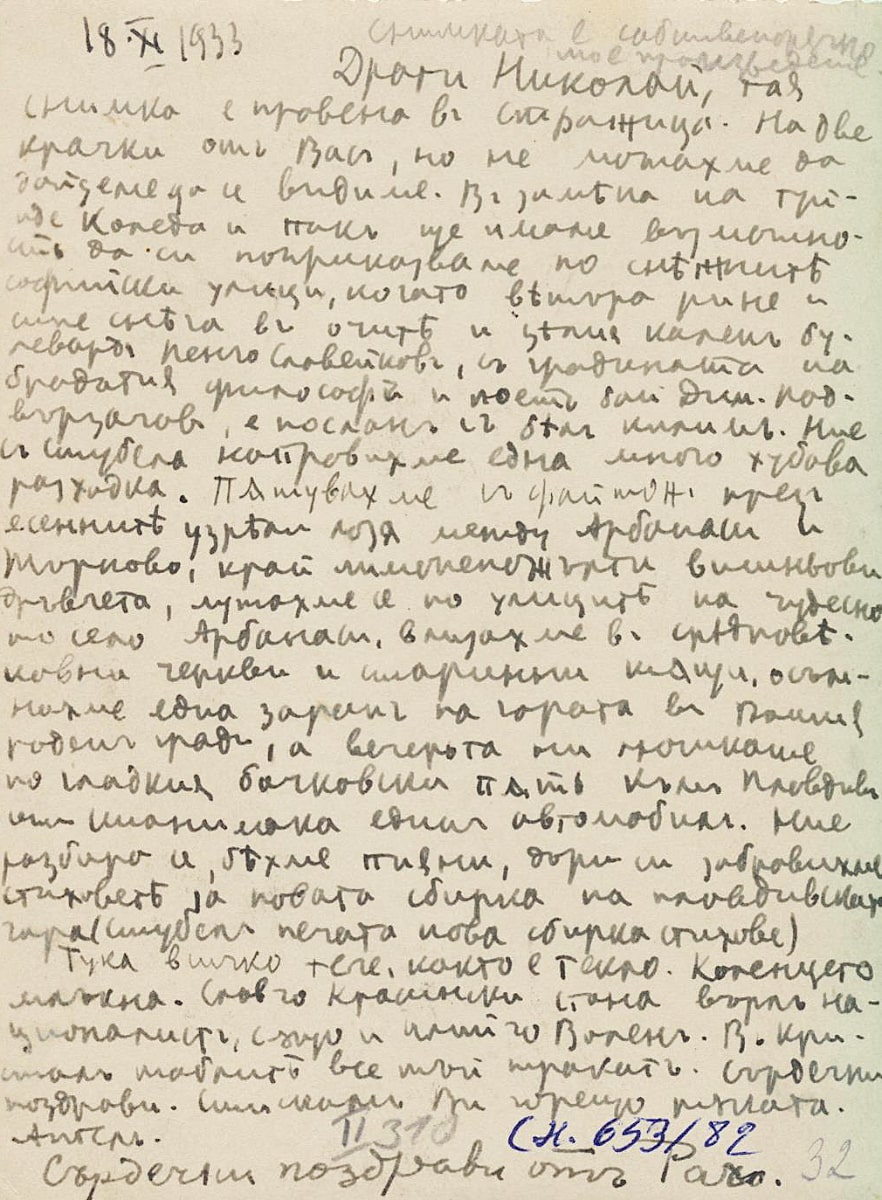 18.XI 1933
снимката е собственоръчно
мое произведение
Драги Николай, тая
снимка е правена въ Стражица. На две
крачки отъ Васъ, но не можахме да
дойдеме да се видиме. Въ замѣна на три-
де Коледа и пакъ ще имаме възможно-
сть да си поприказваме по снѣжнитѣ
софийски улици, когато вѣтъра рине и
сипе снѣга въ очитѣ и цѣлия каленъ бу-
левардъ Пенчо Славейковъ, съ градината на
брадатия философъ и поетъ бай Дим. Под-
вързачовъ, е посланъ съ бѣлъ килимъ. Ние
съ Стубела направихме една много хубава
разходка. Пѫтувахме съ файтонъ презъ
есеннитѣ узрѣли лозя между Арбанаси и
Търново, край лимоненожълти вишньови
дръвчета, лутахме се по улицитѣ на чудесно
то село Арбанаси, влизахме въ срѣдновѣ-
ковни черкви и старинни кѫщи, осъм-
нахме една зарань на гората въ Вашия
роденъ градъ, а вечерьта ни люшкаше
по гладкия бачковски пѫть къмъ Пловдивъ
отъ Станимака единъ автомобилъ. Ние
разбира се, бѣхме пияни, дори си забравихме
стиховетѣ за новата сбирка на пловдивската
гара (Стубелъ печата нова сбирка стихове)
Тука всичко тече, както е текло. Коленцето
млъкна. Славчо Красински стана върлъ на-
ционалистъ, също и Илийчо Воленъ. В. Кри-
сталъ таблитѣ все тъй тракатъ. Сърдечни
поздрави. Стискамъ Ви горещо ръката.
Ангелъ.
II 310
Сн. 653/82
Сърдечни поздрави отъ Рачо.
32